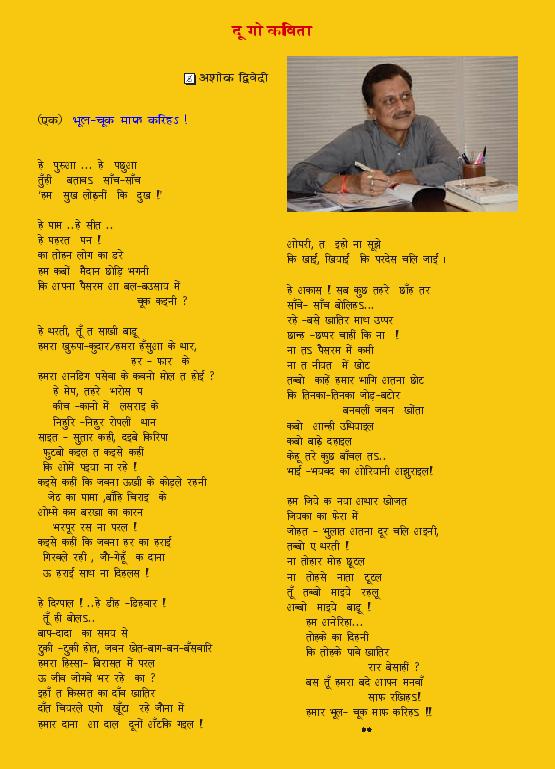 दू गो कविता
अशोक द्विवेदी
(एक) भूल-चूक माफ करिहऽ !
हे पुरुआ ... हे पछुआ
तुँही बतावऽ साँच-साँच
'हम सुख लोढ़नीं कि दुख !'
हे घाम ..हे सीत ..
हे पहरत घन !
का तोहन लोग का डरे
हम कबो मैदान छोड़ि भगनी
कि आपना पैसरम आ बल-बउसाय में
चूक कइनी ?
हे धरती, तूँ त साखी बाड़ू
हमरा खुरुपा-कुदार/हमरा हँसुआ के धार,
हर - फार के
हमरा अनडिग पसेवा के कवनो मोल त होई ?
हे मेघ, तहरे भरोस प
कीच -कानो में लसराइ के
निहुरि -निहुर रोपलीं धान
साइत - सुतार कहीं, दइबे किरिपा
फुटबो कइल त कइसे कहीं
कि ओमें पइया ना रहे !
कइसे कहीं कि जवना ऊखी के कोड़ले रहनी
जेठ का घामा ,बाँहि चिराइ के
ओम्मे कम बरखा का कारन
भरपूर रस ना परल !
कइसे कहीं कि जवना हर का हराई
गिरवले रहीं , जौ-गेहूँ क दाना
ऊ हराई साथ ना दिहलस !
हे दिगपाल ! ..हे डीह -डिहवार !
तूँ ही बोलऽ..
बाप-दादा का समय से
टुकी -टुकी होत, जवन खेत-बाग-बन-बँसवारि
हमरा हिस्सा- बिरासत में परल
ऊ जीव जोगवे भर रहे का ?
इहाँ त किस्मत का दाँव खातिर
दाँत चियरले एगो खूँटा रहे जौना में
हमार दाना आ दाल दूनों अँटकि गइल !
ओपरी, त इहो ना सूझे
कि खाईं, खियाईं कि परदेस चलि जाईं ।
हे अकास ! सब कुछ तहरे छाँह तर
साँचे- साँच बोलिहऽ...
रहे -बसे खातिर माथ उप्पर
छान्ह -छप्पर चाहीं कि ना !
ना तऽ पैसरम में कमी
ना त नीयत में खोट
तब्बो काहें हमार भागि अतना छोट
कि तिनका-तिनका जोड़-बटोर
बनवलीं जवन खोंता
कबो आन्ही उधियाइल
कबो बाढ़े दहाइल
केहू तरे कुछ बाँचल तऽ..
भाई -भवक्द का ओरियानी अझुराइल!
हम जिये क नया अधार खोजत
जियका का फेरा में
जोहत - भुलात अतना दूर चलि अइनी,
तब्बो ए धरती !
ना तोहार मोह छूटल
ना तोहसे नाता टूटल
तूँ तब्बो माइये रहलू
अब्बो माइये बाड़ू !
हम अनेरिहा...
तोहके का दिहनी
कि तोहके पावे खातिर
रार बेसाहीं ?
बस तूँ हमरा बदे आपन मनवाँ
साफ रखिहऽ!
हमार भूल- चूक माफ करिहऽ !!
••